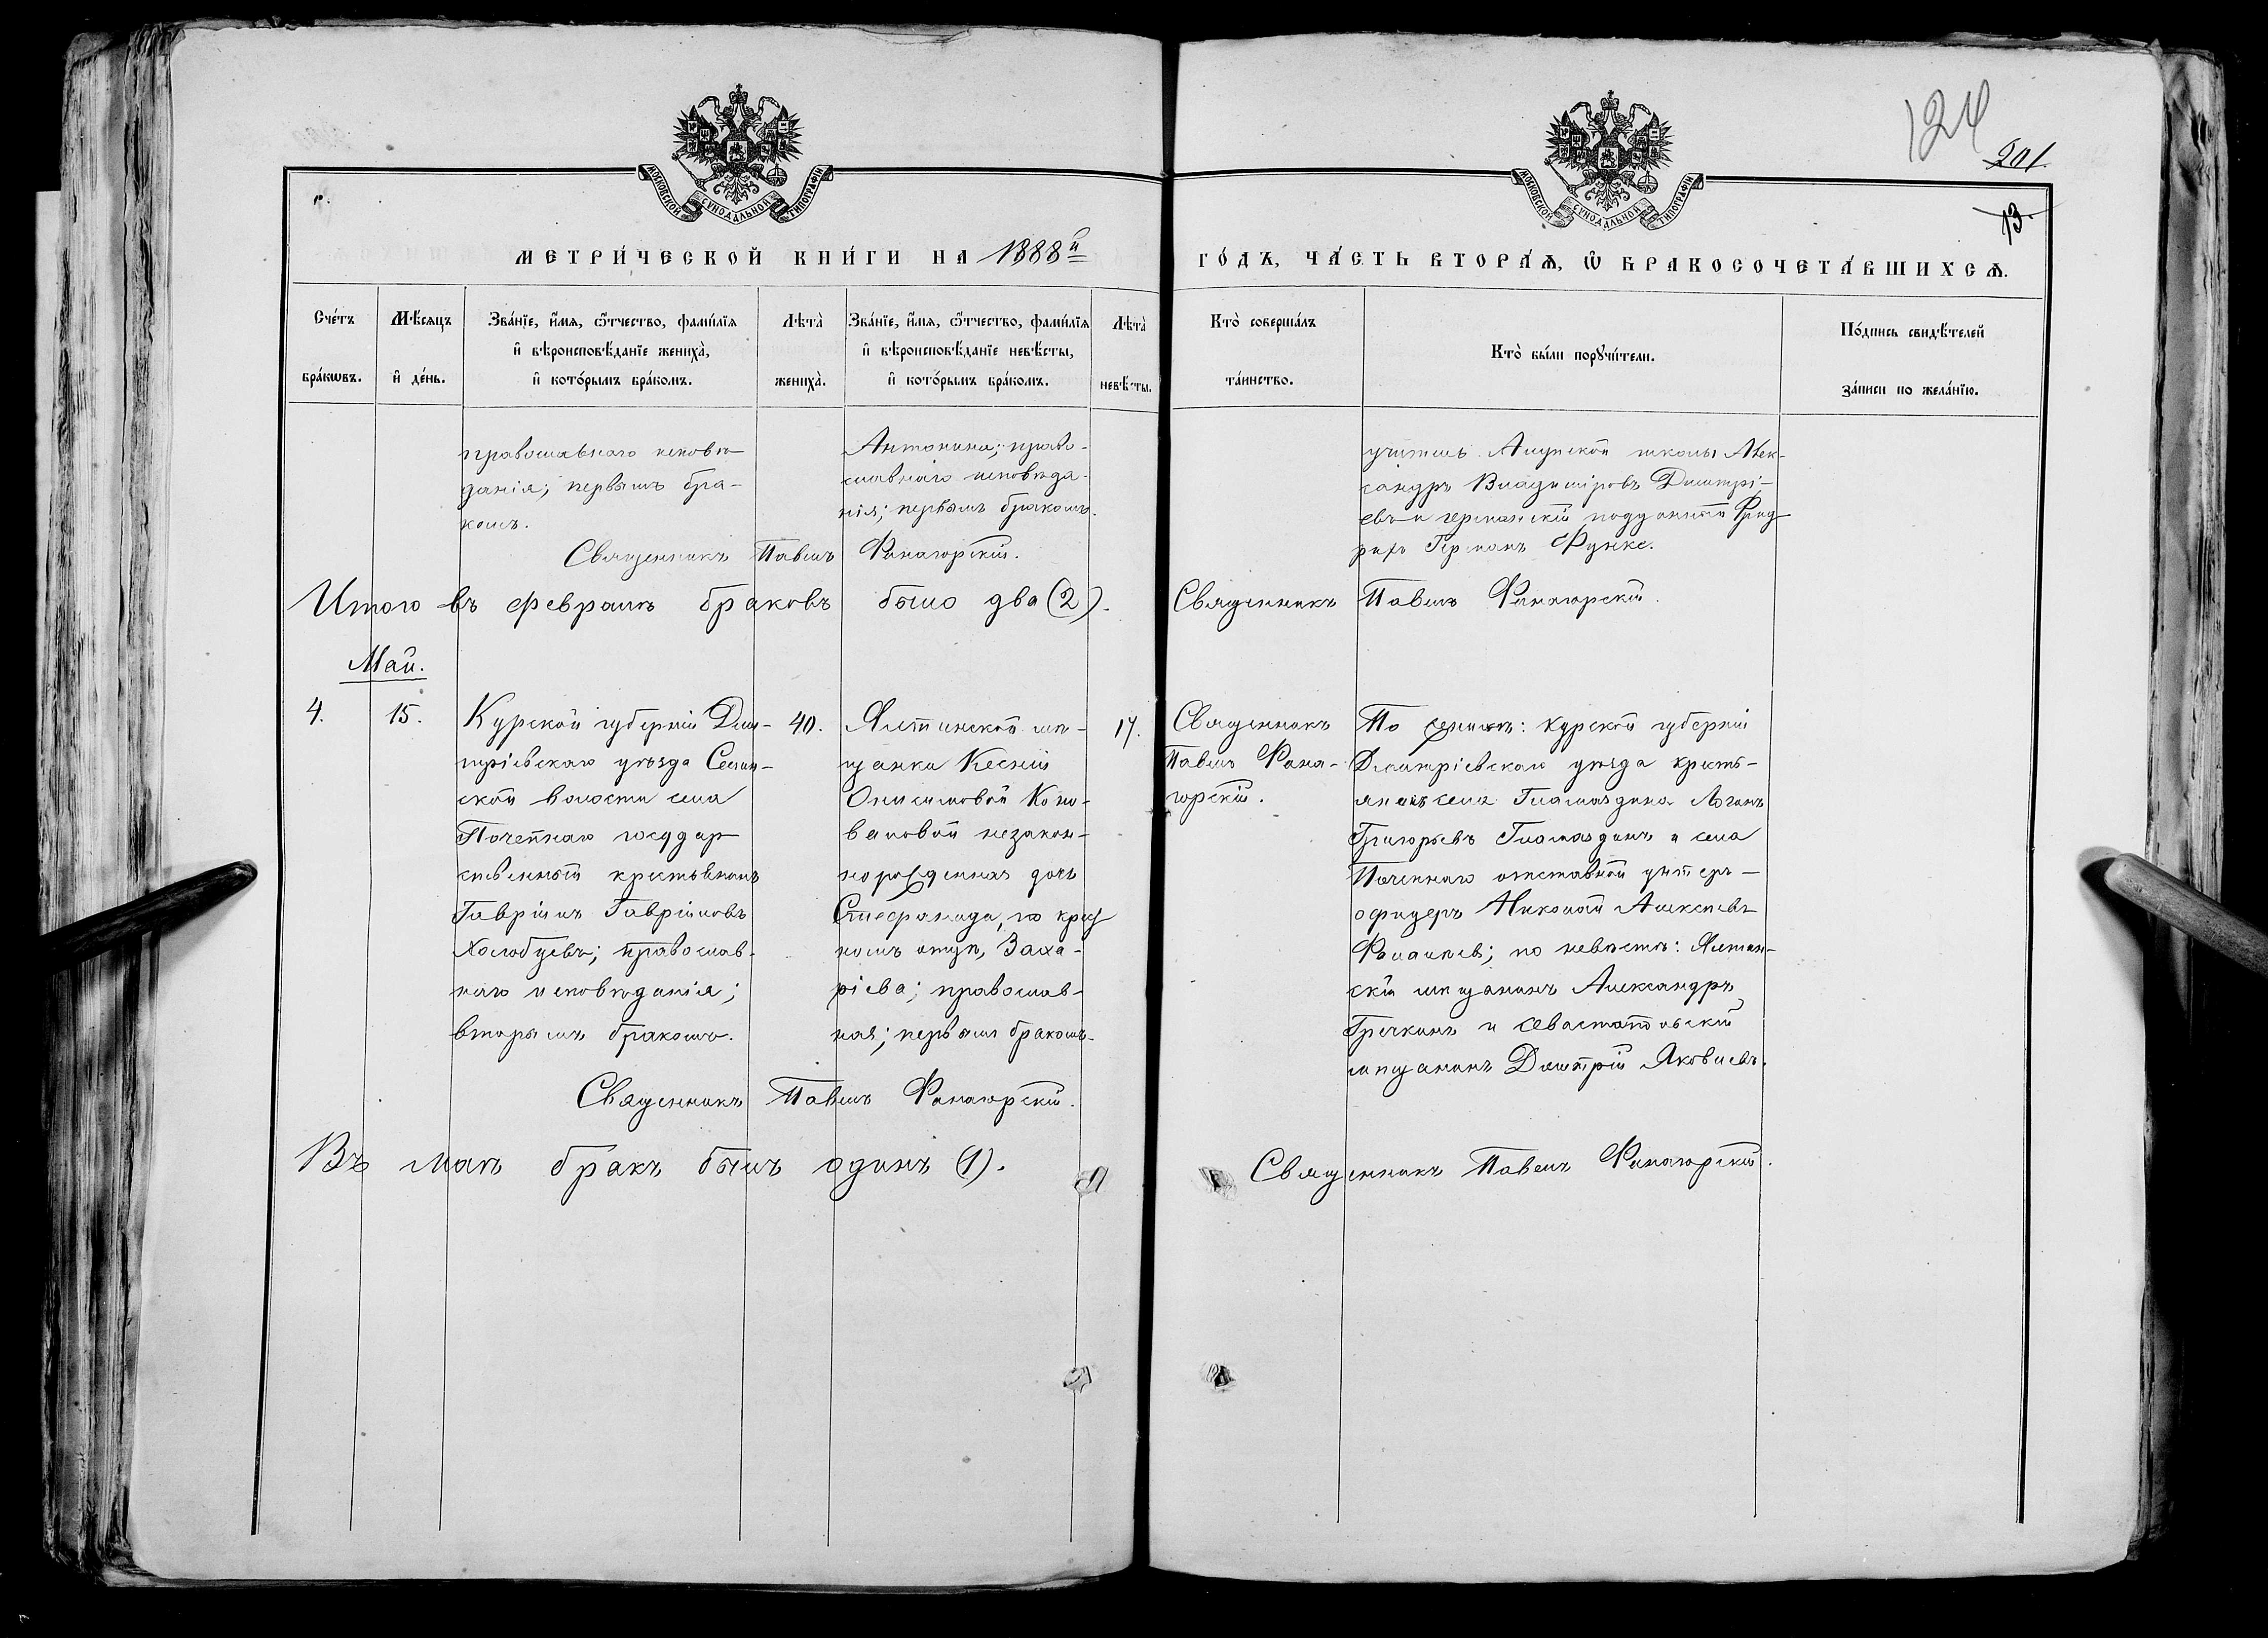 124
201.
13.
МОСКОВСКОЙ СУНОДАЛЬНОЙ ТИПОГРАФІИ
МОСКОВСКОЙ СУНОДАЛЬНОЙ ТИПОГРАФІИ
МЕТРИ́ЧЕСКОЙ КНИ́ГИ НА 1888й
ГО́ДЪ, ЧА́СТЬ ВТОРА́Ѧ, Ѡ҆ БРАКОСОЧЕТА́ВШИХСѦ.
Сче́тъ
бра́кѡвъ.
Мѣ́сяцъ
и҆ де́нь.
Зва́нїе, и҆́мя, ѻ҆́тчество, фами́лїя
и҆ вѣроисповѣ́данїе жениха̀,
и҆ кото́рымъ бра́комъ.
Лѣта̀
жениха̀.
Зва́нїе, и҆́мя, ѻ҆́тчество, фами́лїя
и҆ вѣроисповѣ́данїе невѣ́сты,
и҆ кото́рымъ бра́комъ.
Лѣта̀
невѣ́сты.
Кто̀ соверша́лъ
та́инство.
Кто̀ бы́ли порꙋчи́тели.
По́дпись свидѣ́телей
за́писи по жела́нїю.
православнаго исповѣ-
данія; первымъ бра-
комъ.
Антонина; право-
славнаго исповѣда-
нія; первымъ бракомъ.
учитель школы Алек-
сандръ Владиміровъ Димитрі-
евъ и германскій подданный Фрид
рихъ Германъ Функе.
Священникъ Павелъ Фанагорскій.
Итого въ февралѣ браковъ было два (2).
Священникъ Павелъ Фанагорскій.
Май.
4.
15.
Курской губерніи Дми-
тріевскаго уѣзда
ской волости села
государ
ственный крестьянинъ
Гавріилъ Гавріиловъ
православ-
наго исповѣданія;
вторымъ бракомъ.
40.
Ялтинской мѣ-
щанки Ксеніи
Онисимовой Коно-
валовой незакон-
норожденная дочь
Стефанида, по крест
ному отцу, Заха-
ріева; православ-
ная; первымъ бракомъ.
17.
Священникъ
Павелъ Фана-
горскій.
По женихѣ: Курской губерніи
Дмитріевскаго уѣзда кресть-
янинъ села Гламаздина Логинъ
Григорьевъ Гламаздинъ и села
отставной унтеръ-
офицеръ Николай Алексѣевъ
по невѣстѣ: Ялтин-
скій мѣщанинъ Александръ
Гречкинъ и севастопольскій
мѣщанинъ Дмитрій Яковлевъ.
Священникъ Павелъ Фанагорскій.
Въ маѣ бракъ былъ одинъ (1).
Священникъ Павелъ Фанагорскій.